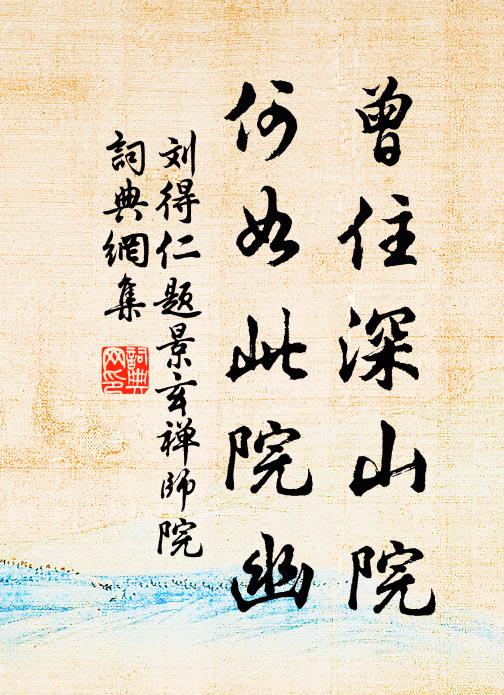 曾住深山院
何如此院幽
刘得仁题景玄禅师院
詞典網集
詞典
网印